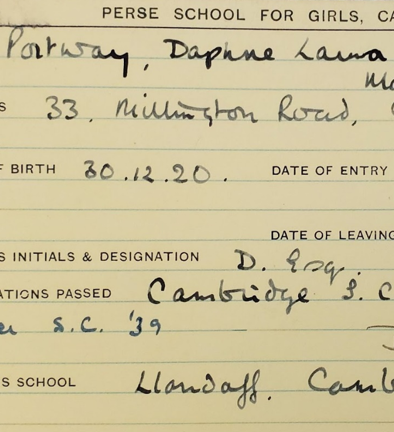 PERSE SCHOOL FOR GIRLS, CA
Portway, Daphne Laura
S 33, Millington Road,
F BIRTH 30.12.20. DATE OF ENTRY
DATE OF LEAVING
S INITIALS & DESIGNATION D. Esq.
ATIONS PASSED Cambridge S. C
S.C. '39
S SCHOOL Llandaff. Camb